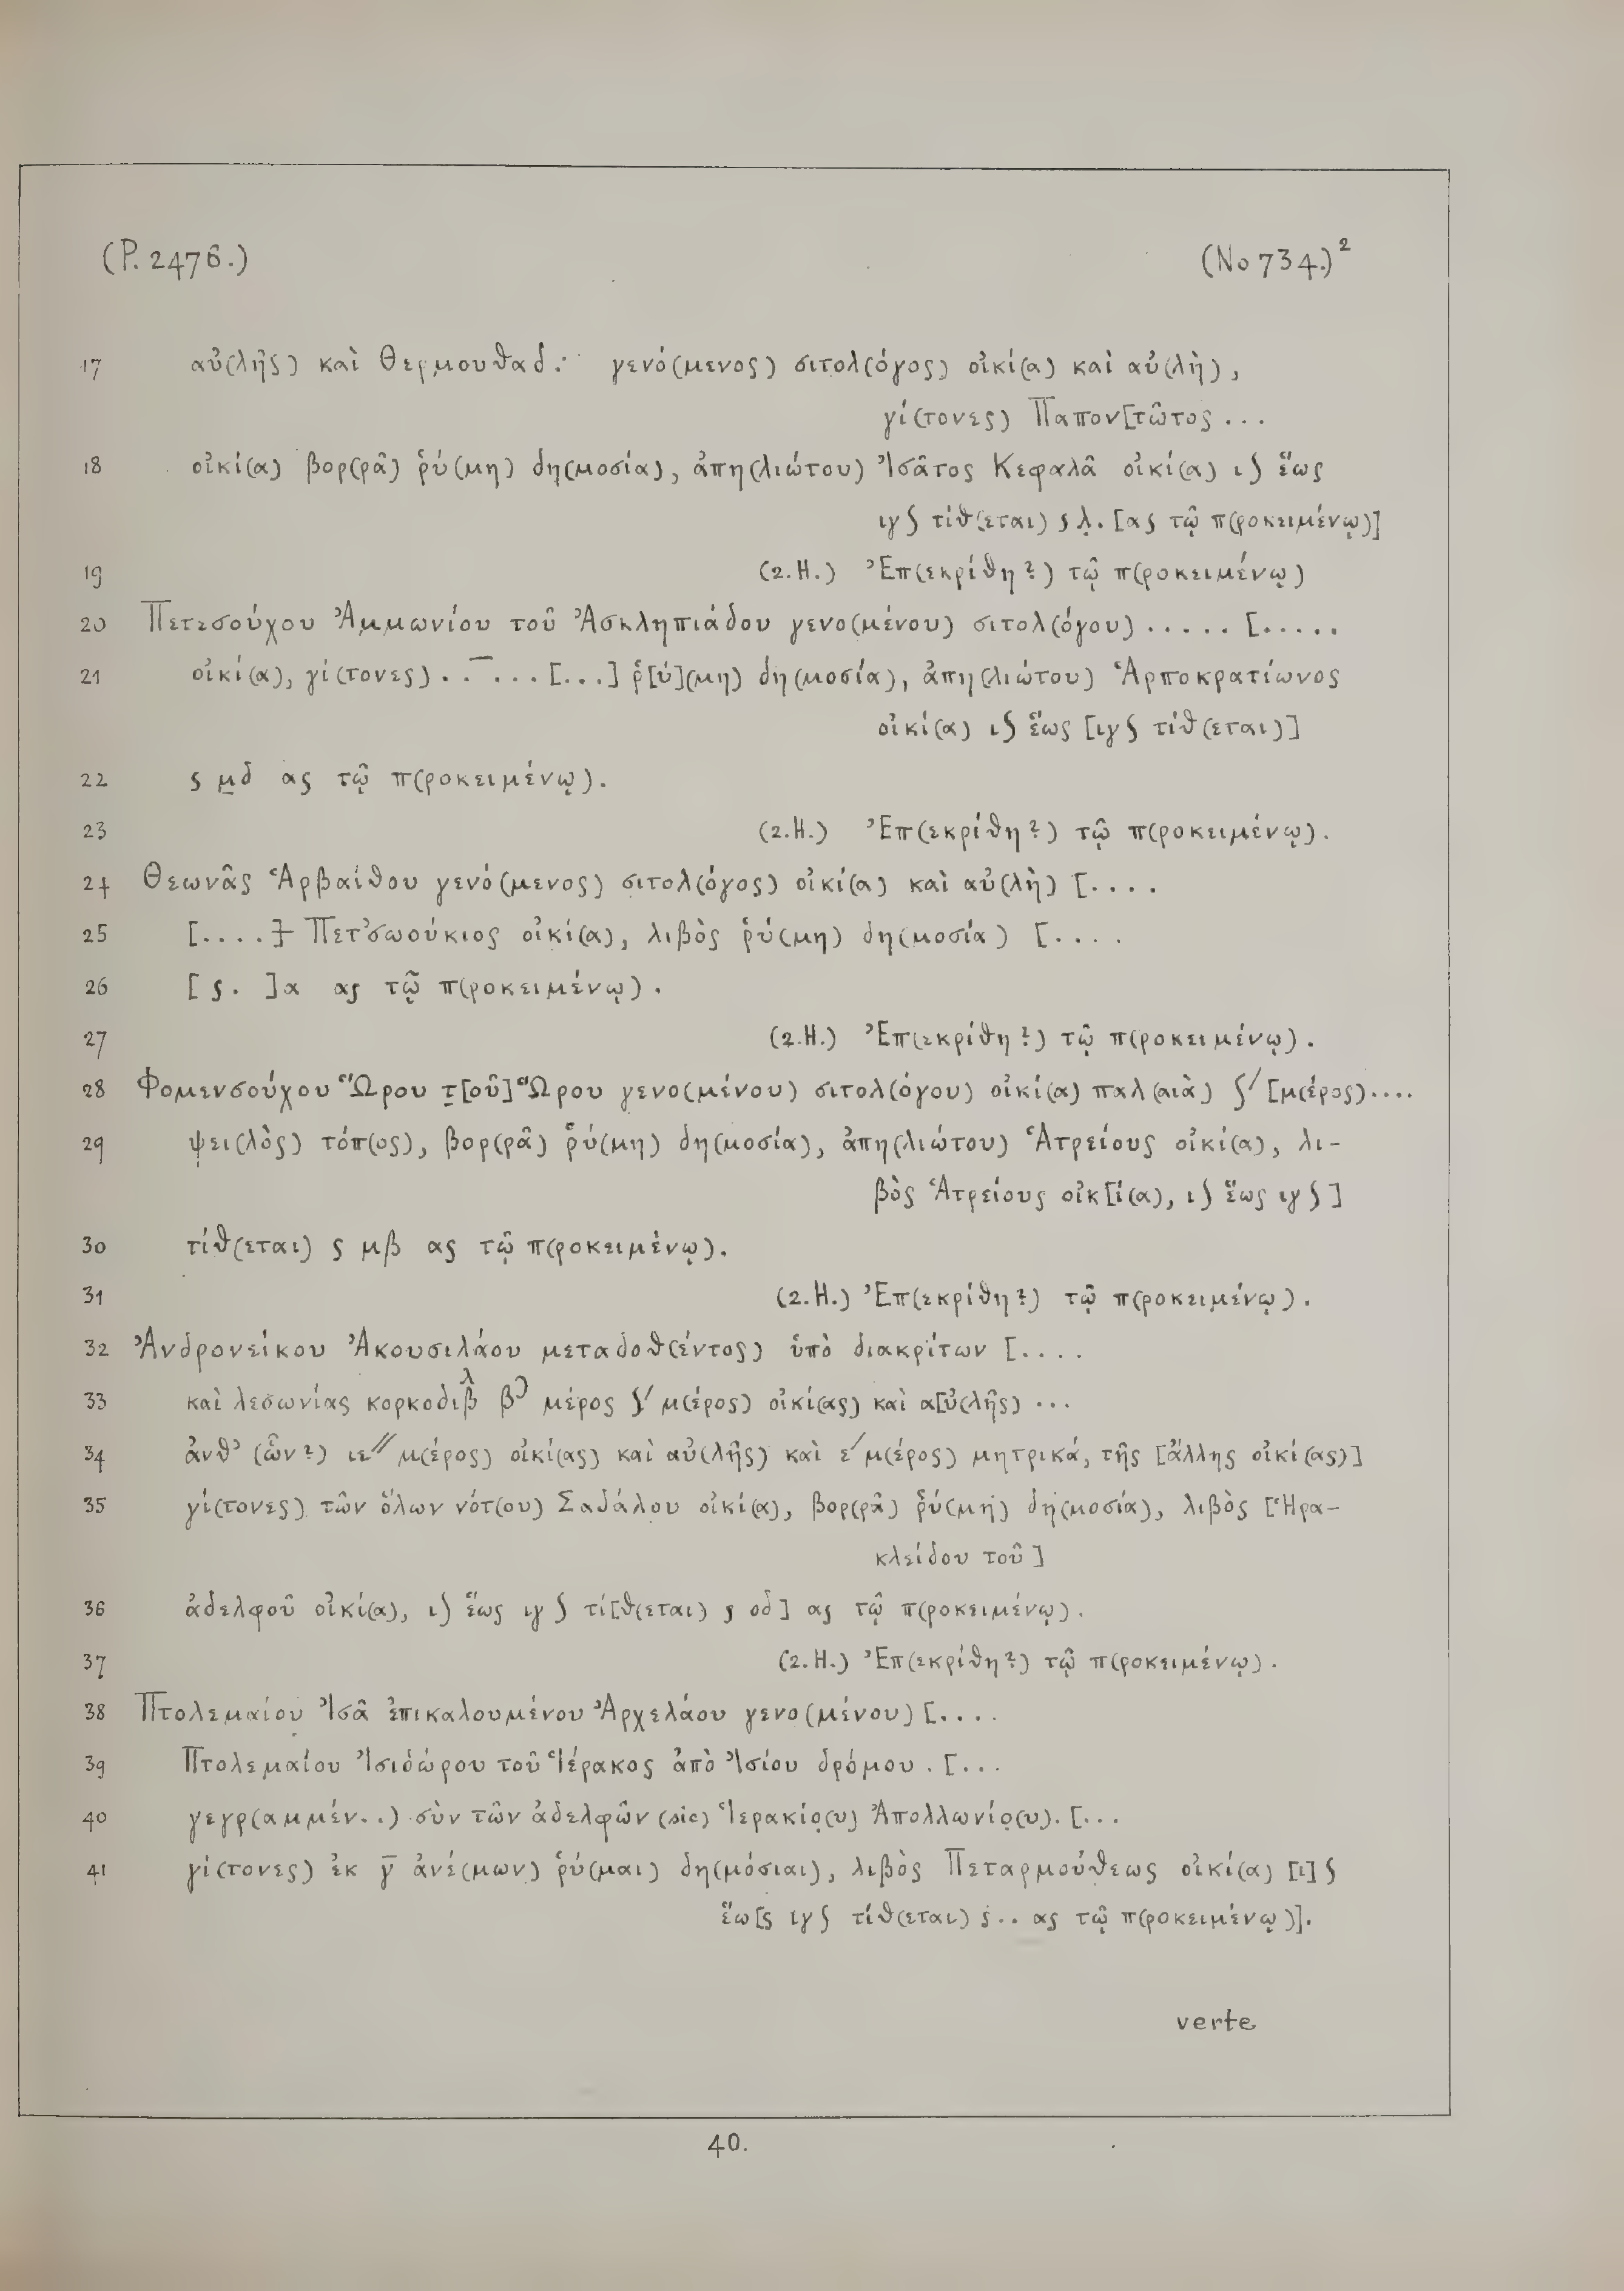 (P. 2476.) (No 734.)²
17 αὐ(λῆς) καὶ Θερμουθαδ: γενό(μενος) σιτολ(όγος) οἰκί(α) καὶ αὐ(λὴ),
γί(τονες) Παπον[τῶτος ...
18 οἰκί(α) βορ(ρᾶ) ῥύ(μη) δη(μοσία), ἀπη(λιώτου) Ἰσᾶτος Κεφαλᾶ οἰκί(α) ι∫ ἕως
ιγ∫ τίθ(εται) ς λ̣. [ας τῷ π(ροκειμένῳ)]
19 (2.H.) Ἐπ(εκρίθη?) τῷ π(ροκειμένῳ)
20 Πετεσούχου Ἀμμωνίου τοῦ Ἀσκληπιάδου γενο(μένου) σιτολ(όγου) ..... [.....
21 οἰκί(α), γί(τονες) . . ‾ ... [...] ῥ[ύ](μη) δη(μοσία), ἀπη(λιώτου) Ἁρποκρατίωνος
οἰκί(α) ι∫ ἕως [ιγ∫ τίθ(εται)]
22 ς μ̲δ ας τῷ π(ροκειμένῳ).
23 (2.H.) Ἐπ(εκρίθη?) τῷ π(ροκειμένῳ).
24 Θεωνᾶς Ἁρβαίθου γενό(μενος) σιτολ(όγος) οἰκί(α) καὶ αὐ(λὴ) [....
25 [....] Πετ̓σωούκιος οἰκί(α), λιβὸς ῥύ(μη) δη(μοσία) [....
26 [ς. ]α ας τῷ π(ροκειμένῳ).
27 (2.H.) Ἐπ(εκρίθη?) τῷ π(ροκειμένῳ).
28 Φομενσούχου Ὥρου τ̲[οῦ] Ὥρου γενο(μένου) σιτολ(όγου) οἰκί(α) παλ(αιὰ) ∫′ [μ(έρος)....
29 ψει(λὸς) τόπ(ος), βορ(ρᾶ) ῥύ(μη) δη(μοσία), ἀπη(λιώτου) Ἁτρείους οἰκί(α), λι-
βὸς Ἁτρείους οἰκ[ί(α), ι∫ ἕως ιγ∫]
30 τίθ(εται) ς μβ ας τῷ π(ροκειμένῳ).
31 (2.H.) Ἐπ(εκρίθη?) τῷ π(ροκειμένῳ).
32 Ἀνδρονείκου Ἀκουσιλάου μεταδοθ(έντος) ὑπὸ διακρίτων [....
33 καὶ λεσωνίας κορκοδιβ̄λ βʾ μέρος ∫′ μ(έρος) οἰκί(ας) καὶ α[ὐ(λῆς) ...
34 ἀνθ’ (ὧν?) ιε″ μ(έρος) οἰκί(ας) καὶ αὐ(λῆς) καὶ ε′ μ(έρος) μητρικά, τῆς [ἄλλης οἰκί(ας)]
35 γί(τονες) τῶν ὅλων νότ(ου) Σαδάλου οἰκί(α), βορ(ρᾶ) ῥύ(μη) δη(μοσία), λιβὸς [Ἡρα-
κλείδου τοῦ]
36 ἀδελφοῦ οἰκί(α), ι∫ ἕως ιγ∫ τί[θ(εται) ς οδ] ας τῷ π(ροκειμένῳ).
37 (2.H.) Ἐπ(εκρίθη?) τῷ π(ροκειμένῳ).
38 Πτολεμαίου Ἰσᾶ ἐπικαλουμένου Ἀρχελάου γενο(μένου) [....
39 Πτολεμαίου Ἰσιδώρου τοῦ Ἱέρακος ἀπὸ Ἰσίου δρόμου . [...
40 γεγρ(αμμέν..) σὺν τῶν ἀδελφῶν (sic) Ἱερακίο̣(υ) Ἀπολλωνίο̣(υ). [...
41 γί(τονες) ἐκ γ̄ ἀνέ(μων) ῥύ(μαι) δη(μόσιαι), λιβὸς Πεταρμούθεως οἰκί(α) [ι]∫
ἕω[ς ιγ∫ τίθ(εται) ς.. ας τῷ π(ροκειμένῳ)].
verte
40.